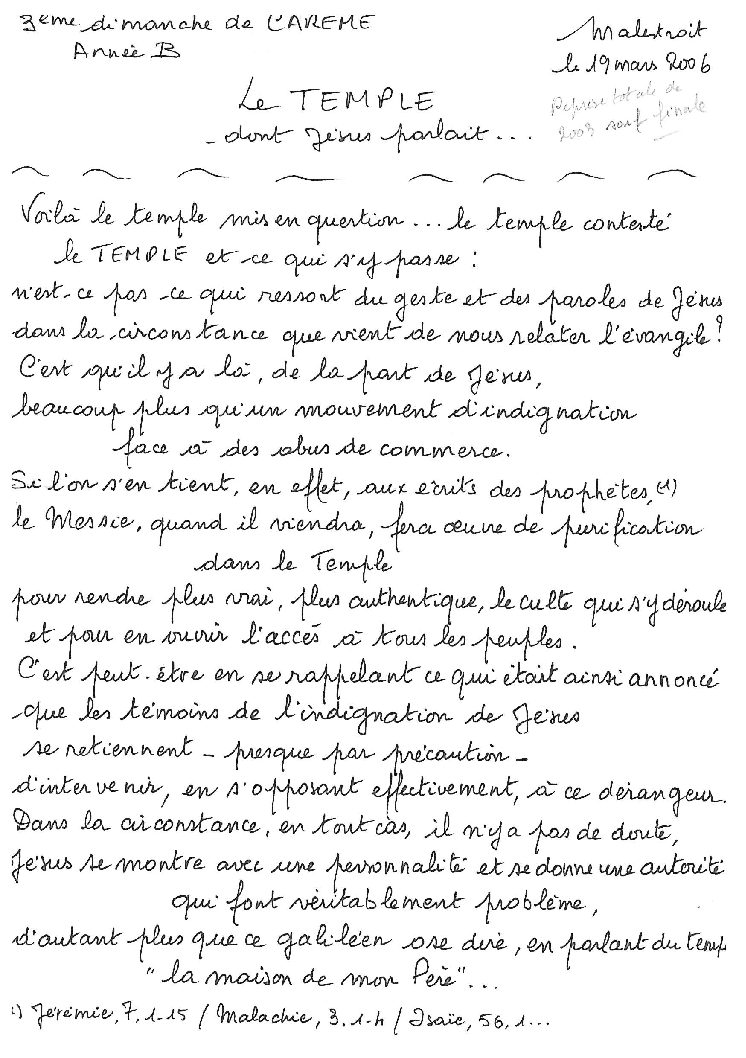 3ème dimanche de CARÊME
Année B
Malestroit
le 19 mars 2006
Reprise totale de
2003 sauf finale
Le TEMPLE
- dont Jésus parlait...
Voilà le temple mis en question... le temple contesté
le TEMPLE et ce qui s'y passe :
n'est-ce pas ce qui ressort du geste et des paroles de Jésus
dans la circonstance que vient de nous relater l'évangile ?
C'est qu'il y a là, de la part de Jésus,
beaucoup plus qu'un mouvement d'indignation
face à des abus de commerce.
Si l'on s'en tient, en effet, aux écrits des prophètes, (1)
le Messie, quand il viendra, fera œuvre de purification
dans le Temple
pour rendre plus vrai, plus authentique, le culte qui s'y déroule
et pour en ouvrir l'accès à tous les peuples.
C'est peut-être en se rappelant ce qui était ainsi annoncé
que les témoins de l'indignation de Jésus
se retiennent - presque par précaution -
d'intervenir, en s'opposant effectivement, à ce dérangeur.
Dans la circonstance, en tout cas, il n'y a pas de doute,
Jésus se montre avec une personnalité et se donne une autorité
qui font véritablement problème,
d'autant plus que ce galiléen ose dire, en parlant du temp
"la maison de mon Père"...
1) Jérémie, 7, 1-15 / Malachie, 3. 1-4 / Isaïe, 56, 1...